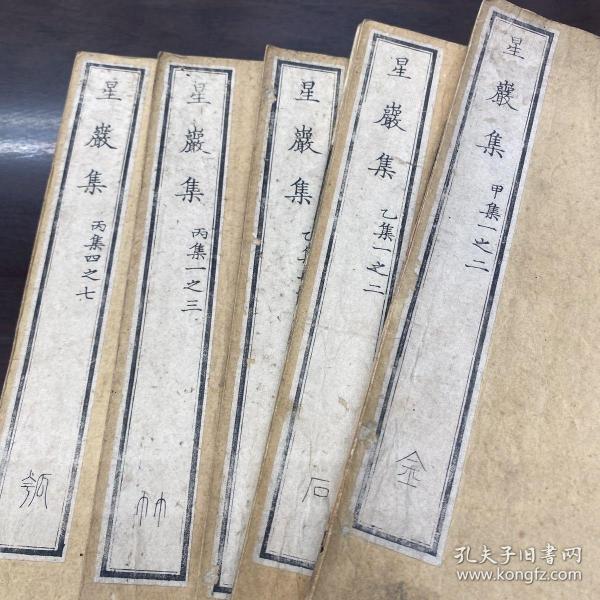 星巖集 甲集一之二
金
星巖集 乙集一之二
石
星巖集 乙集
星巖集 丙集一之三
竹
星巖集 丙集四之七
瓠
孔夫子旧书网
www.kongfz.com